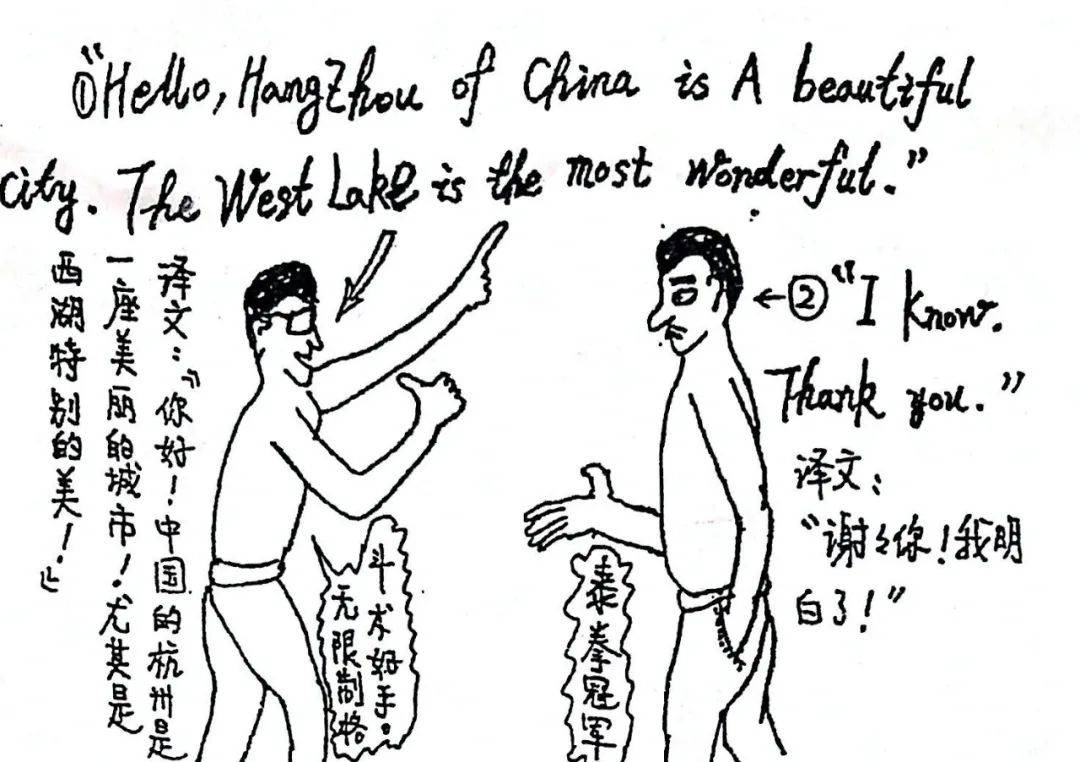 ①"Hello, HangZhou of China is A beautiful
city. The West Lake is the most wonderful."
译文："你好！中国的杭州是
一座美丽的城市！尤其是
西湖特别的美！"
无限制格
斗术好手。
②"I know.
Thank you."
译文：
"谢々你！我明
白了！"
泰拳冠军